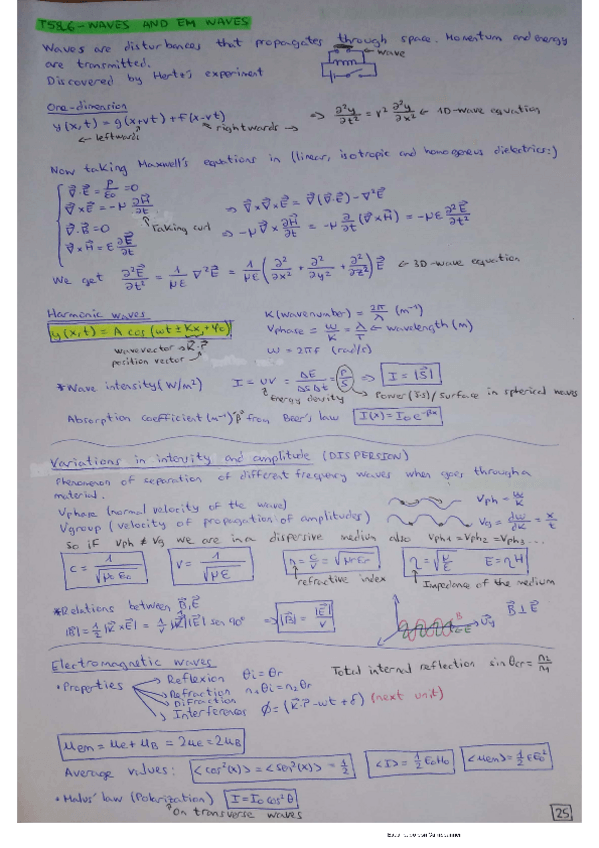 T5&6-WAVES AND EM WAVES
Waves are disturbances that propagates through space. Momentum and energy
are transmitted.
wave
Discovered by Hertz's experiment
One-dimension
y(x,t) = g(x+vt) + f(x-vt) ⇒ ∂²y/∂t² = v² ∂²y/∂x² ← 1D-wave equation
← leftwards rightwards →
Now taking Maxwell's equations in (linear, isotropic and homogeneus dielectrics:)
∇·E = ρ/ε₀ = 0
∇×E = -μ ∂H/∂t ⇒ ∇×∇×E = ∇(∇·E) - ∇²E
∇·B = 0 Taking curl ⇒ -μ ∇× ∂H/∂t = -μ ∂/∂t (∇×H) = -με ∂²E/∂t²
∇×H = ε ∂E/∂t
We get ∂²E/∂t² = 1/με ∇²E = 1/με (∂²/∂x² + ∂²/∂y² + ∂²/∂z²) E ← 3D-wave equation
Harmonic waves K (wavenumber) = 2π/λ (m⁻¹)
y(x,t) = A cos (wt ± kx + φ₀) Vphase = w/K = λ/T ← wavelength (m)
wavevector → K·r w = 2πf (rad/s)
position vector
*Wave intensity (W/m²) I = uv = ΔE/ΔS Δt = P/S ⇒ I = |S|
Energy density Power (J·s)/surface in spherical waves
Absorption coefficient (m⁻¹) "β" from Beer's law I(x) = I₀ e^-βx
Variations in intensity and amplitude (DISPERSION)
Phenomenon of separation of different frequency waves when goes through a
material.
Vphase (normal velocity of the wave) Vph = w/K
Vgroup (velocity of propagation of amplitudes) Vg = dw/dk = x/t
So if Vph ≠ Vg we are in a dispersive medium also Vph1 = Vph2 = Vph3 ...
c = 1/√μ₀ε₀ v = 1/√με n = c/v = √μrεr η = √μ/ε E = ηH
refractive index Impedance of the medium
*Relations between B, E
|B| = 1/v |K × E| = 1/v |K| |E| sen 90° ⇒ |B| = |E|/v B ⊥ E
Electromagnetic waves
Total internal reflection sinθcr = n₂/n₁
• Properties
Reflexion θi = θr
Refraction n₁θi = n₂θr
Difraction
Interferences φ = (K·r - wt + δ) (next unit)
uem = uE + uB = 2uE = 2uB
Average values: <cos²(x)> = <sen²(x)> = 1/2 <I> = 1/2 E₀H₀ <uem> = 1/2 εE₀²
• Malus' law (Polarization) I = I₀ cos²θ
On transverse waves
25